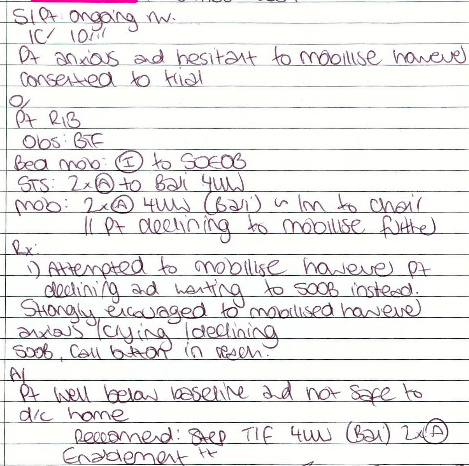 S/ Pt ongoing nv.
IC/ 10iii
Pt anxious and hesitant to mobilise however
consented to trial
O/
Pt RIB
Obs: BTF
Bed mob: Ⓘ to SOEOB
STS: 2xⒶ to Bari 4WW
mob: 2xⒶ 4WW (Bari) ~ 1m to chair
// Pt declining to mobilise further
Rx:
1) Attempted to mobilise however pt
declining and wanting to SOOB instead.
Strongly encouraged to mobilised however
anxious /crying /declining
SOOB, Call button in reach.
A/
Pt well below baseline and not safe to
d/c home
Reccomend: Step TIF 4WW (Bari) 2xⒶ
Enablement ++